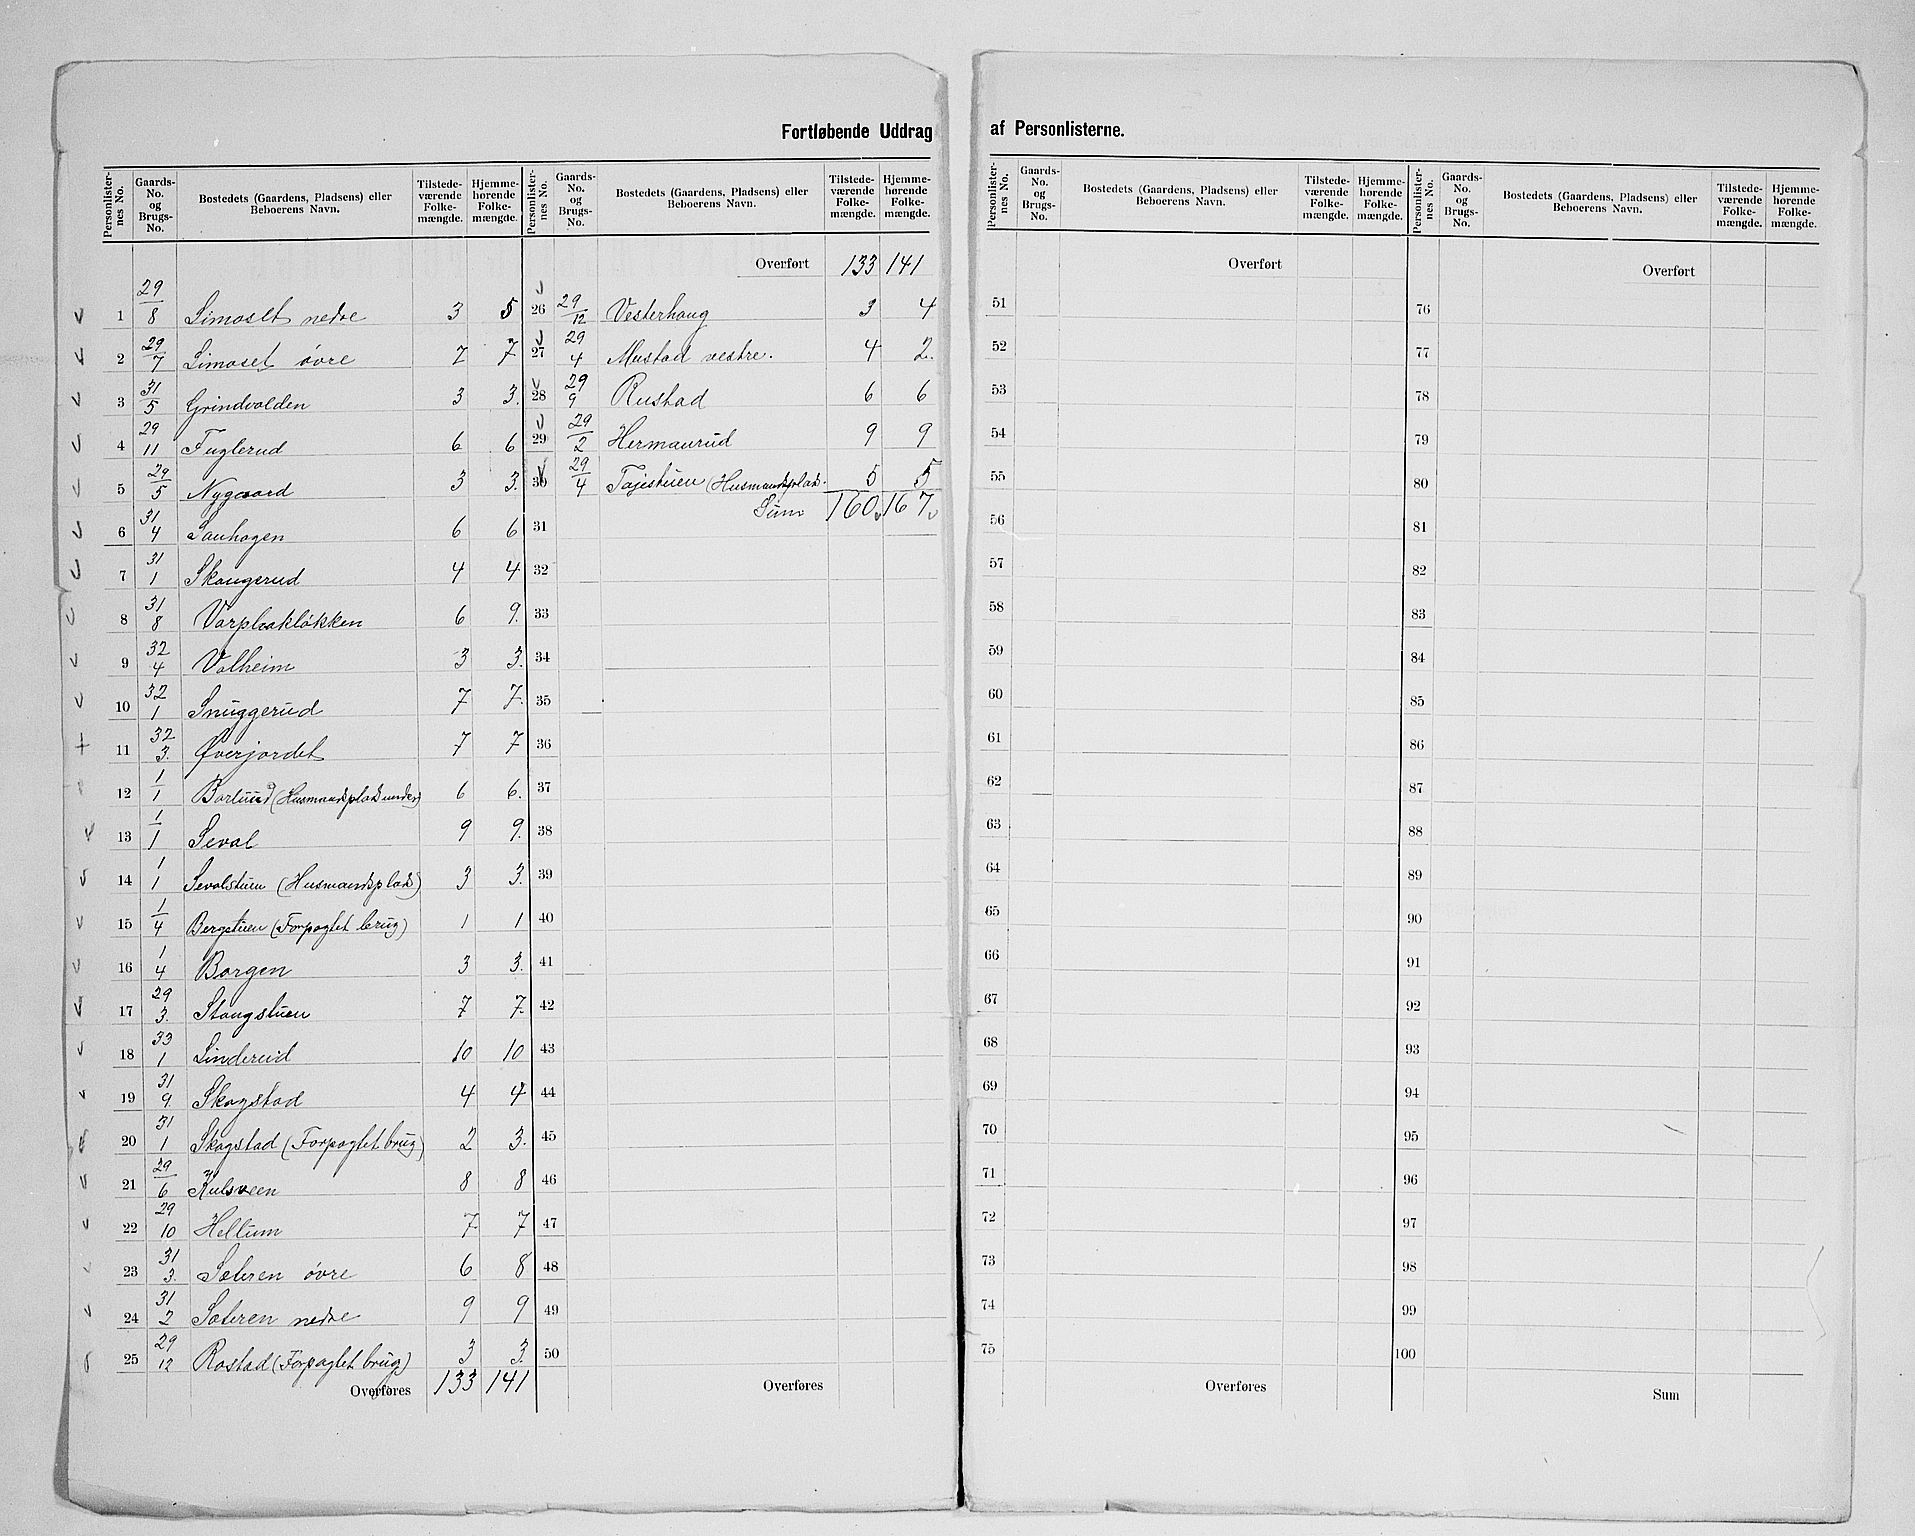 Fortløbende Uddrag af Personlisterne.
Personlister-nes No. | Gaards-No. og Brugs-No. | Bostedets (Gaardens, Pladsens) eller Beboerens Navn. | Tilstede-værende Folke-mængde. | Hjemme-hørende Folke-mængde.
1 29/8 Limoset nedre 3 5
2 29/7 Limoset øvre 7 7
3 31/5 Grindvolden 3 3.
4 29/11 Fuglerud 6 6
5 29/5 Nygaard 3 3.
6 31/4 Sauhagen 6 6
7 31/1 Skaugerud 4 4
8 31/8 Varpbakløkken 6 9.
9 32/4 Valheim 3 3.
10 32/1 Snuggerud 7 7.
11 32/3. Øverjordet 7 7
12 1/1 (Husmandsplads under) 6 6.
13 1/1 Seval 9 9.
14 1/1 Sevalstuen (Husmandsplads) 3 3.
15 1/4 Bergstuen (Forpagtet brug) 1 1
16 1/4 Borgen 3 3.
17 29/3. Stangstuen 7 7.
18 33/1 Linderud 10 10
19 31/9. Skogstad 4 4
20 31/1 Skogstad (Forpagtet brug) 2 3.
21 29/6 Kulsveen 8 8
22 29/10 Hellum 7 7
23 31/3. Sæteren øvre 6 8
24 31/2 Sæteren nedre 9 9
25 29/12 Rostad (Forpagtet brug) 3 3.
Overføres 133 141
Personlister-nes No. | Gaards-No. og Brugs-No. | Bostedets (Gaardens, Pladsens) eller Beboerens Navn. | Tilstede-værende Folke-mængde. | Hjemme-hørende Folke-mængde.
Overført 133 141
26 29/12 Vesterhaug 3 4
27 29/4 Mustad vestre. 4 2.
28 29/9 Rustad 6 6
29 29/2 Hermanrud 9 9
30 29/4 Tajestuen (Husmandsplads. 5 5
Sum 160 167
31
32
33
34
35
36
37
38
39
40
41
42
43
44
45
46
47
48
49
50
Overføres
Personlister-nes No. | Gaards-No. og Brugs-No. | Bostedets (Gaardens, Pladsens) eller Beboerens Navn. | Tilstede-værende Folke-mængde. | Hjemme-hørende Folke-mængde.
Overført
51
52
53
54
55
56
57
58
59
60
61
62
63
64
65
66
67
68
69
70
71
72
73
74
75
Overføres
Personlister-nes No. | Gaards-No. og Brugs-No. | Bostedets (Gaardens, Pladsens) eller Beboerens Navn. | Tilstede-værende Folke-mængde. | Hjemme-hørende Folke-mængde.
Overført
76
77
78
79
80
81
82
83
84
85
86
87
88
89
90
91
92
93
94
95
96
97
98
99
100
Sum